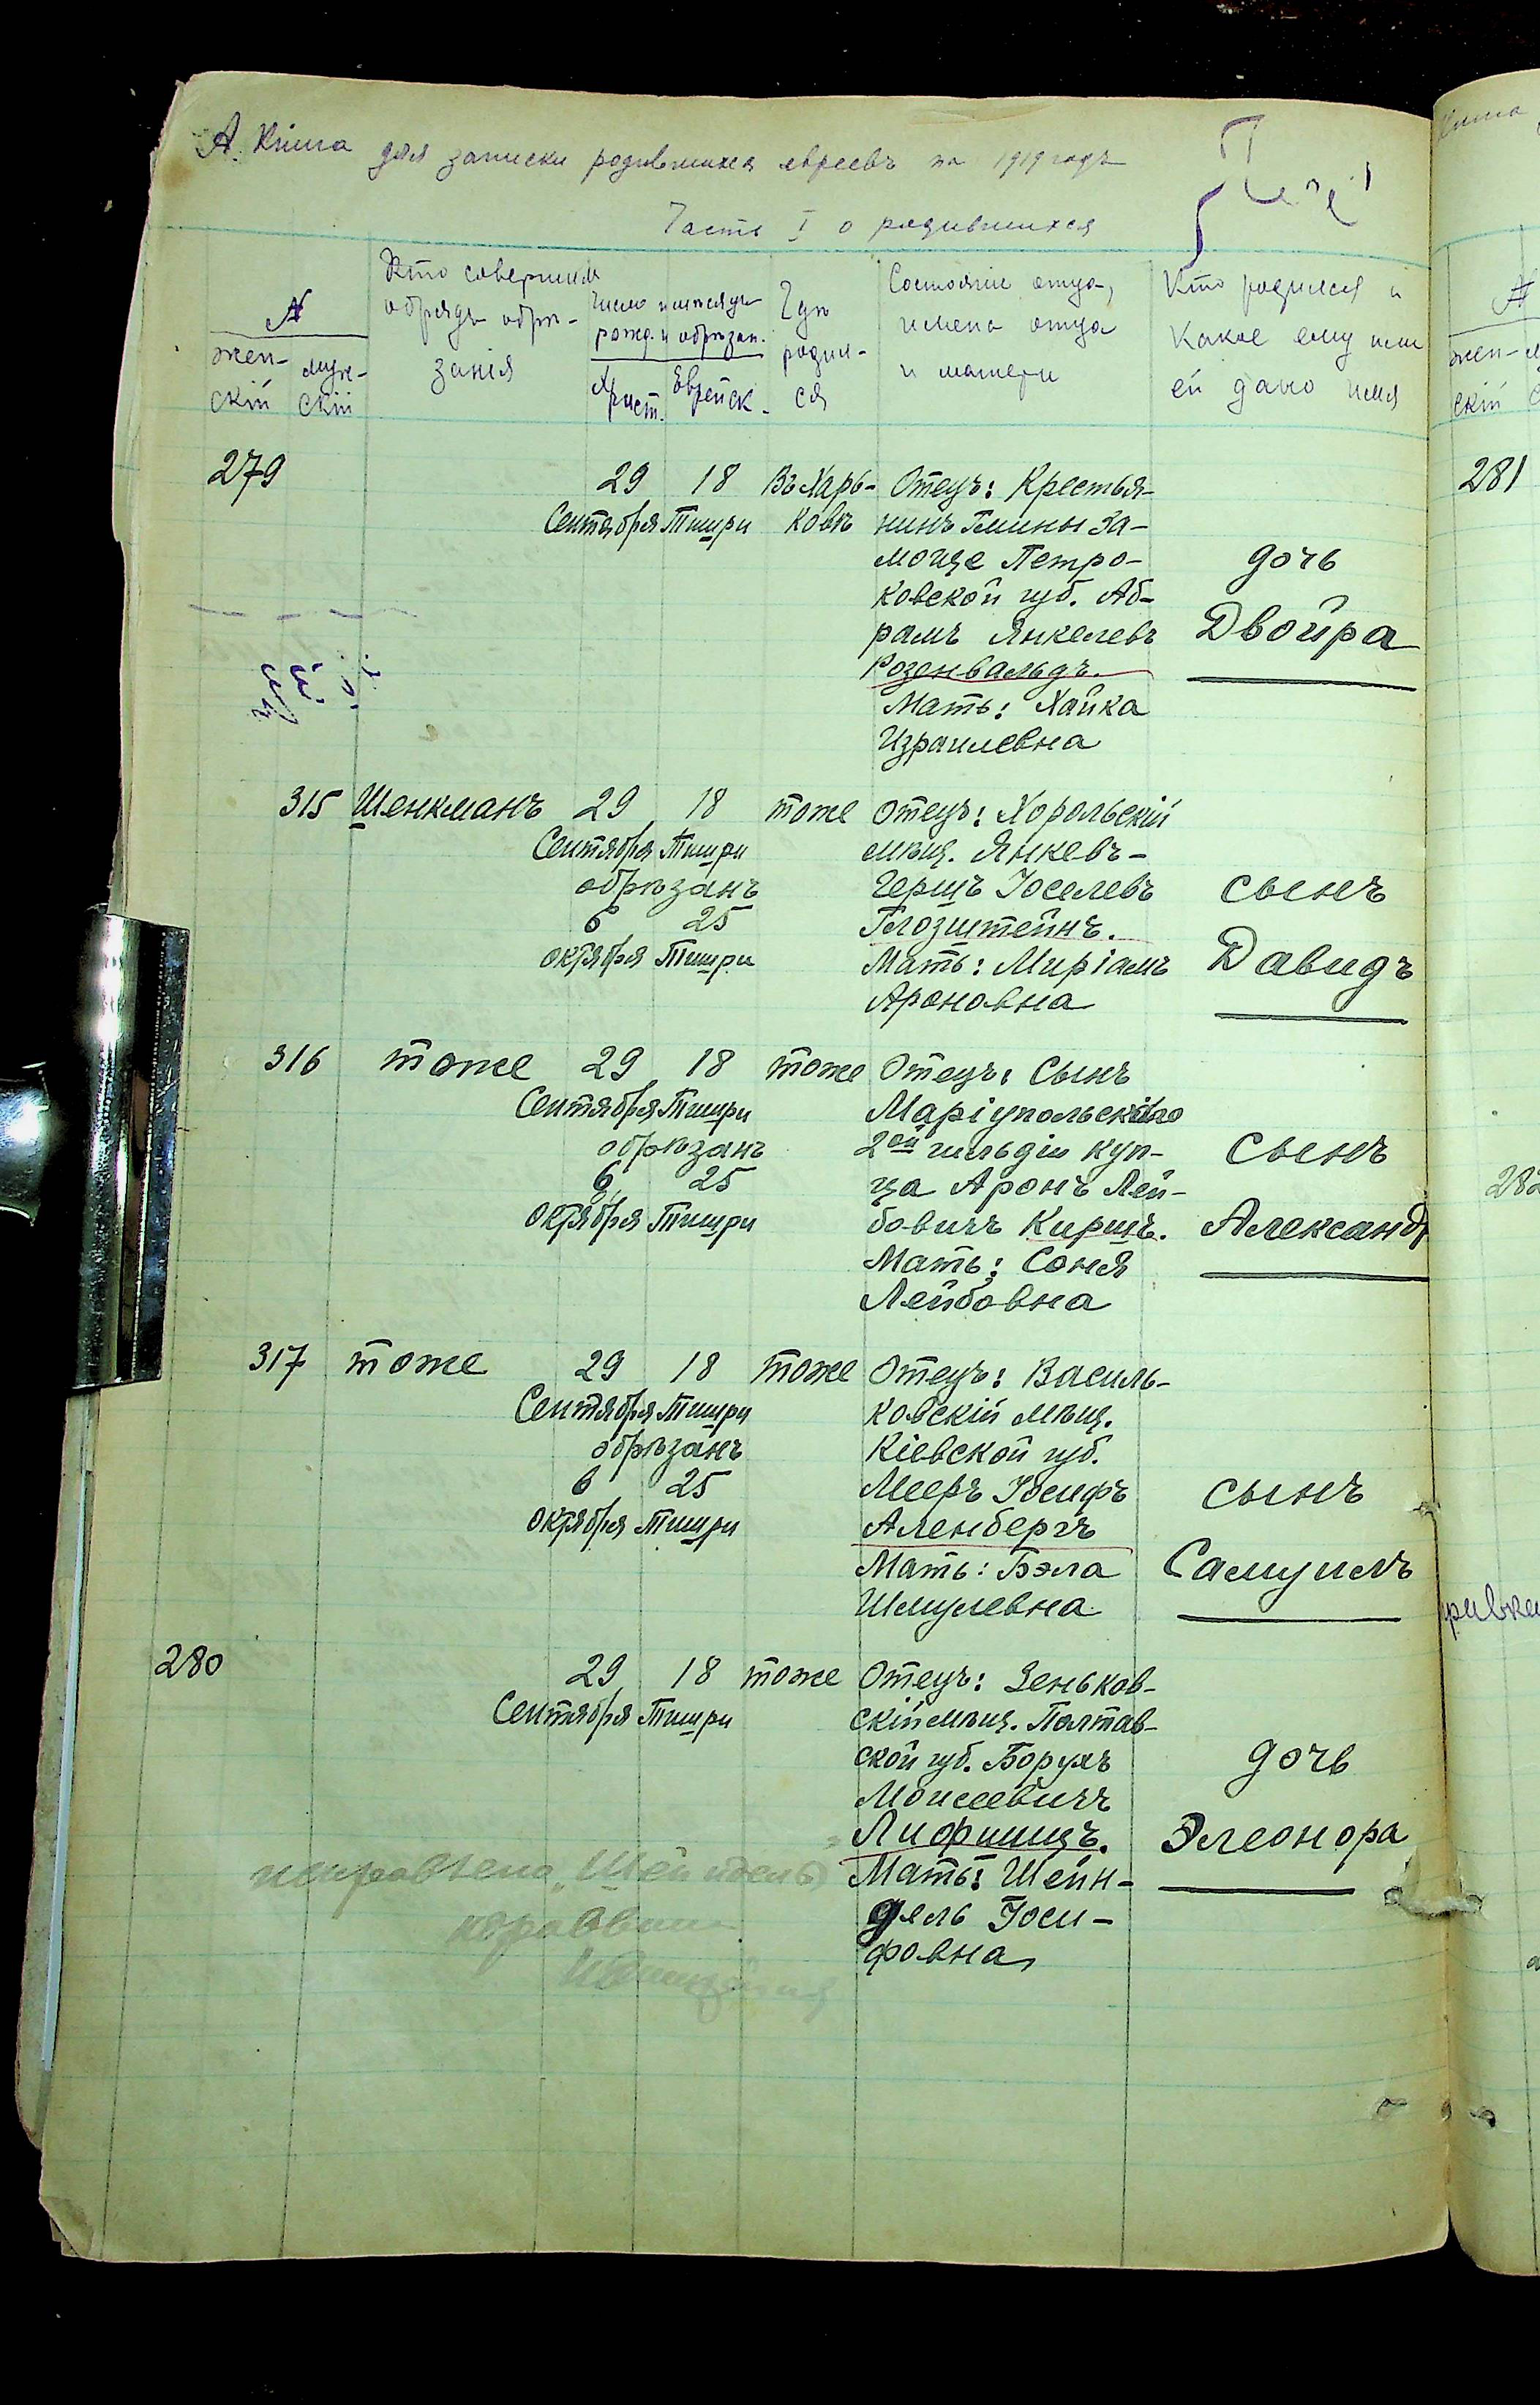 А. Книга для записки родившихся евреевъ на 1919 годъ
Часть I о родившихся
№
жен-
скій
муж-
скій
Кто совершилъ
обрядъ обрѣ-
занія
Число и мѣсяцъ
рожд. и обрѣзан.
Христ.
Еврейск.
Гдѣ
родил-
ся
Состояніе отца,
имена отца
и матери
Кто родился и
какое ему или
ей дано имя
279
29 18
Сентября Тишри
Въ Харь-
ковѣ
Отецъ: Крестья-
нинъ Гмины За-
мощье Петро-
ковской губ. Аб-
рамъ Янкелевъ
Розенвальдъ.
Мать: Хайка
Израилевна
дочь
Двойра
315 Шенкманъ
29 18
Сентября Тишри
обрѣзанъ
6 25
октября Тишри
тоже
Отецъ: Хорольскій
мѣщ. Янкевъ-
Гершъ Іоселевъ
Глозштейнъ.
Мать: Миріамъ
Ароновна
сынъ
Давидъ
316 тоже
29 18
Сентября Тишри
обрѣзанъ
6 25
Октября Тишри
тоже
Отецъ: Сынъ
Маріупольскаго
2ой гильдіи куп-
ца Аронъ Лей-
бовичъ Киршъ.
Мать: Соня
Лейбовна
сынъ
Александр
317 тоже
29 18
Сентября Тишри
обрѣзанъ
6 25
октября Тишри
тоже
Отецъ: Василь-
ковскій мѣщ.
Кіевской губ.
Мееръ Іосифъ
Аленбергъ
Мать: Бэла
Шмулевна
сынъ
Самуилъ
280
29 18
Сентября Тишри
тоже
Отецъ: Зеньков-
скій мѣщ. Полтав-
ской губ. Борухъ
Моисеевичъ
Лифшицъ.
Мать: Шейн-
дель Іоси-
фовна
дочь
Элеонора
исправлено
281
282